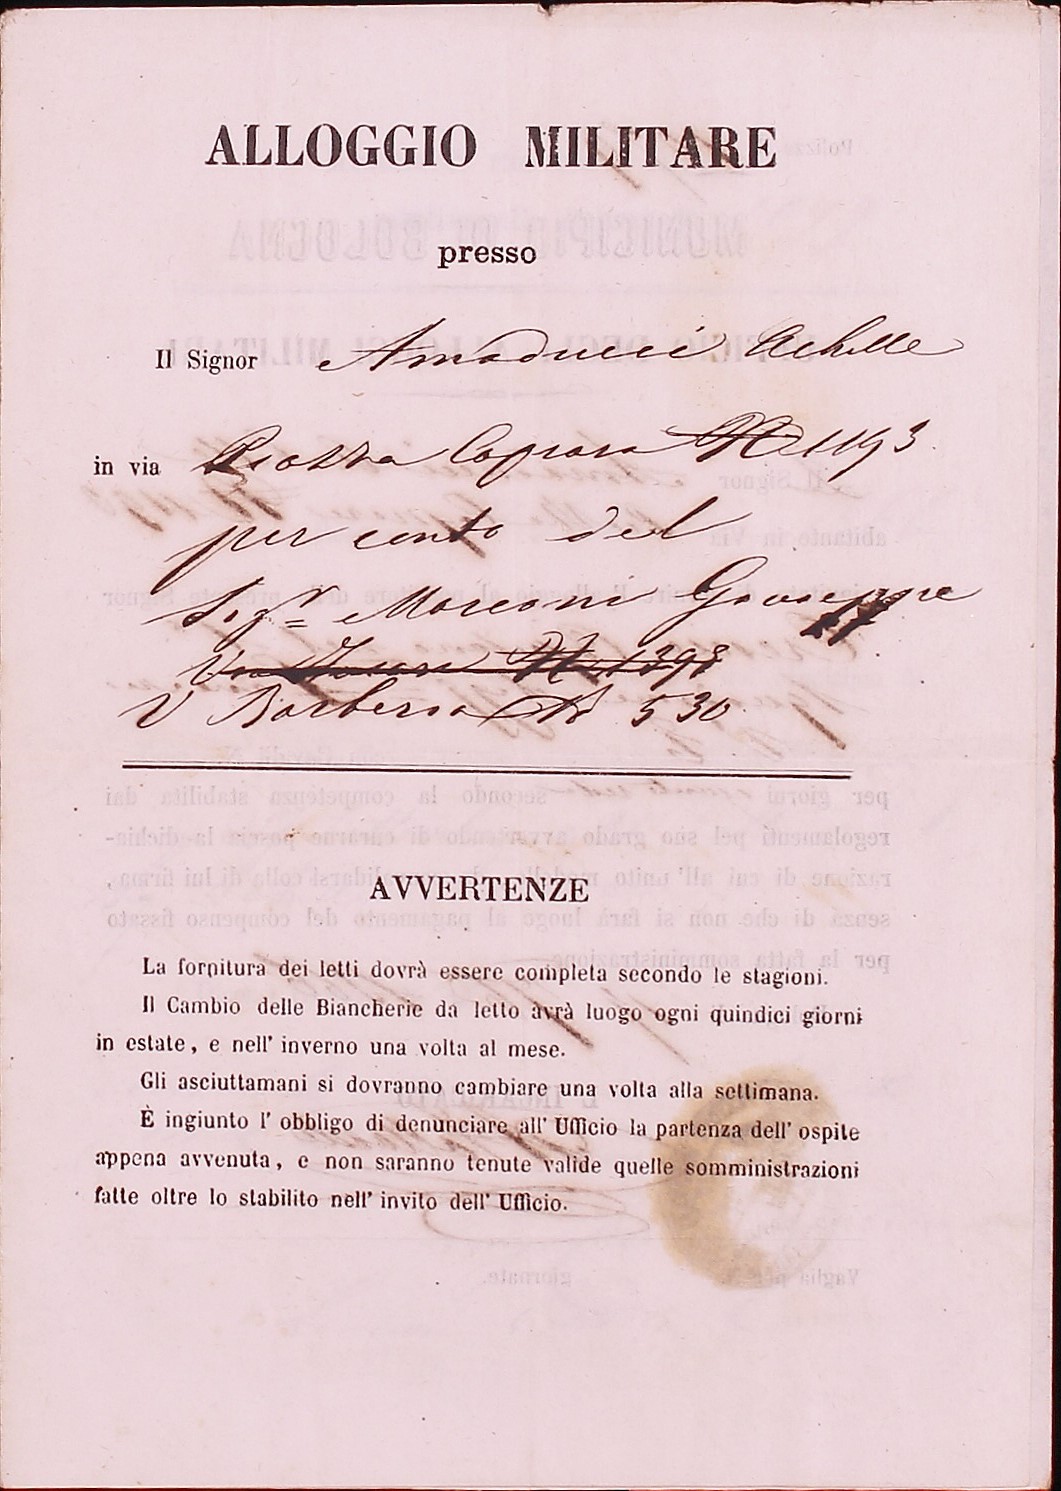 ALLOGGIO MILITARE
presso
Il Signor Amaducci Achille
in via Piazza Caprara N 1193
per conto del
Sigr Marconi Giuseppe
Via N 1393
V Barberia N 530
AVVERTENZE
La fornitura dei letti dovrà essere completa secondo le stagioni.
Il Cambio delle Biancherie da letto avrà luogo ogni quindici giorni
in estate, e nell' inverno una volta al mese.
Gli asciuttamani si dovranno cambiare una volta alla settimana.
È ingiunto l' obbligo di denunciare all' Ufficio la partenza dell' ospite
appena avvenuta, e non saranno tenute valide quelle somministrazioni
fatte oltre lo stabilito nell' invito dell' Ufficio.